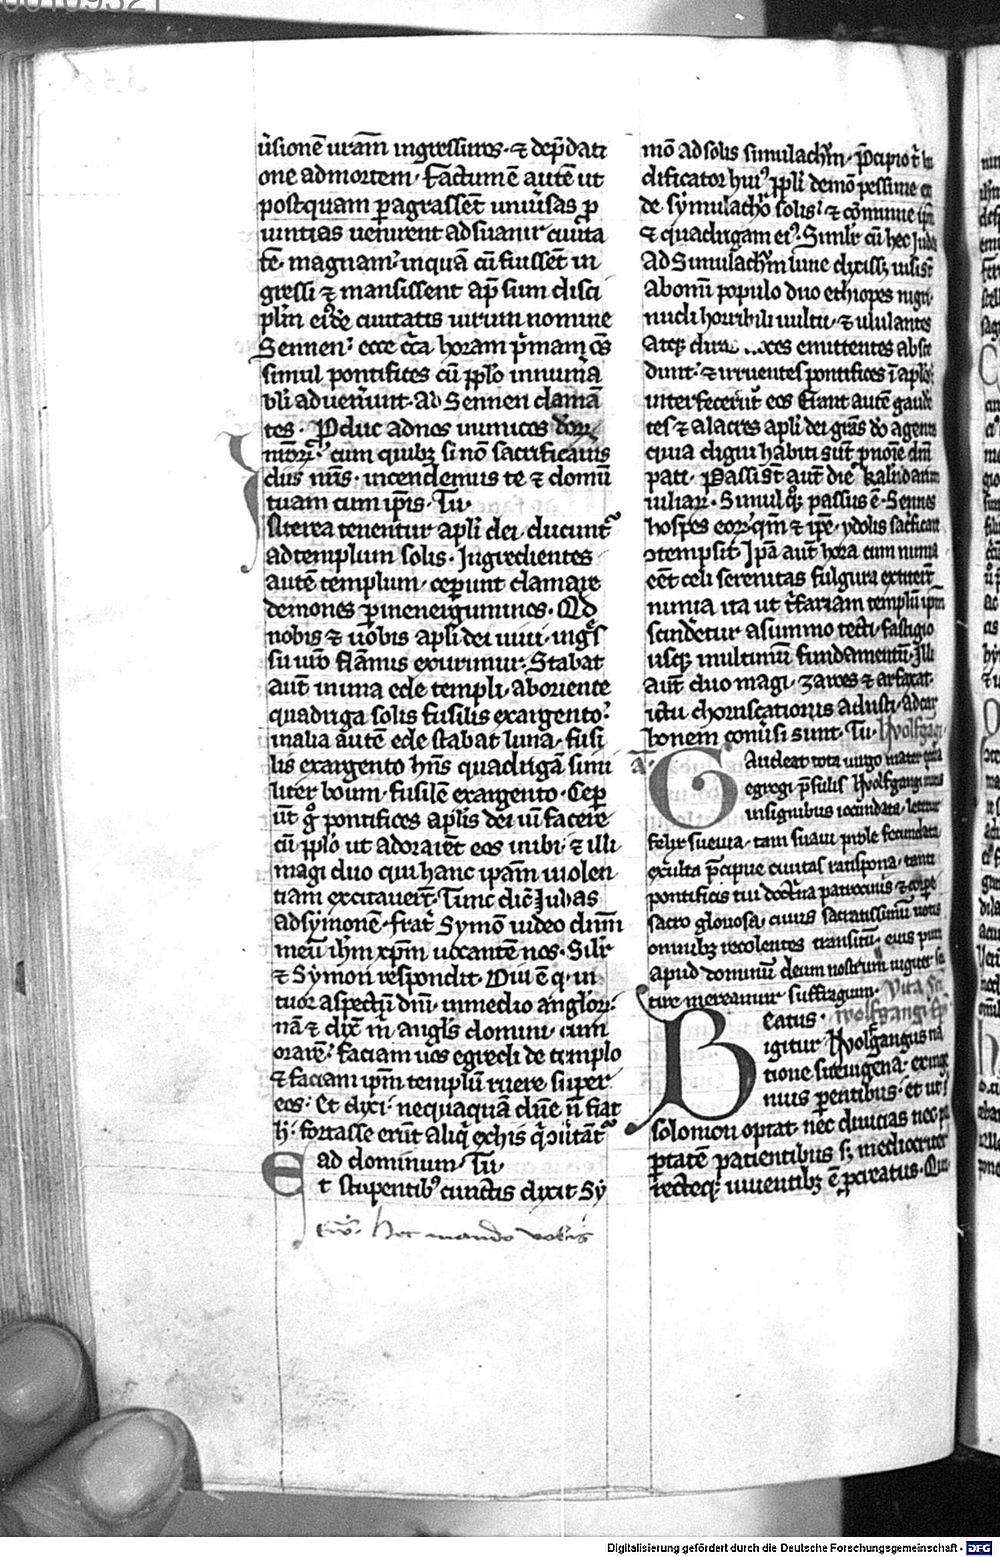 ûsionē urām ingressuros · ⁊ dep̄dati
one ad mortem · Factum ē autē ut
postquam ꝑagrassēt uniûsas ꝓ
uintias uenirent ad suanir ciuita
tē · magnam · in quā cū fuissēt in
gressi ⁊ mansissent ap̄ sum disci
plm̄ eidē ciuitatis uirum nomine
Sennen · ecce c̄ca horam p̄mam oēs
simul pontifices cū ꝓplo innumia
bli aduenerunt · ad Sennen clamā
tes · Ꝓduc ad nos inimicos dōrꝝ
nr̄orꝝ · cum quibꝫ si nō sacrificauis
diis nr̄is · incendemus te ⁊ domū
tuam cum ip̄is · Tu ·
Interea tenentur apl̄i dei · ducunt᷑
ad templum solis · Ingredientes
autē templum · ceperunt clamare
demones ꝑ inenerguminos · Qđ
nobis ⁊ uōbis apl̄i dei uiui · uigs̄
su ur̄o flāmis exurimur · Stabat
aut̄ inima ede templi · ab oriente
quadriga solis fusilis ex argento ·
in alia autē ede stabat luna · fusi
lis ex argento hn̄s quadrigā simi
liter boum · fusilē ex argento · Cep
ūt g̊ pontifices apl̄is dei uī facere
cū ꝓplo ut adorarēt eos inibi · ⁊ illi
magi duo qui hanc ip̄am uiolen
tiam excitauert̄ · Tunc dic̄ Judas
ad symonē · frat̄ Symō uideo dnm̄
meū ihm̄ xp̄m uocantē nos · Silr̄
⁊ Symon respondit · Diu ē q · in
tuor aspectū dn̄i · in medio anglorꝝ ·
nā ⁊ dix̄ m̄ angls̄ domini · cum
orarē · faciam uos egredi de templo
⁊ faciam ip̄m templū ruere super
eos · Et dixi · nequaquā dn̄e n̄ fiat
h̄ · fortasse erūt aliq̄ ex his q̄ ꝯûtāt᷑
ad dominum · Tu ·
Et stupentibꝰ cunctis dixit Sy
Ew̄ · Hec mando vobis
mō ad solis simulachꝝ · p̄cipio t̄
dificator huiꝰ ꝓpli demō pessime
de symulachro solis · ⁊ cōminue ip̄m
⁊ quadrigam eiꝰ · Similr̄ cū hec Judas
ad Simulachm̄ lune dixissꝫ · uisi st̄
ab omī populo duo ethiopes nigri ·
nudi horribili uultu · ⁊ ululantes
atqꝫ diras uoces emittentes absce
dunt · ⁊ irruentes pontifices ī aplos
interfecerūt eos Erant autē gaude
tes ⁊ alacres apl̄i dei grās dō agentes
quia digni habiti sūt ꝓ noīe dnī
pati · Passi st̄ aut̄ die kalendarum
iuliarꝝ · Simulqꝫ passus ē · Sennes
hospes eorꝝ · qm̄ ⁊ ip̄e · ydolis sacrificare
ꝯtempsit · Ip̄a aut̄ hora cum nimia
eēt celi serenitas fulgura extiterūt
nimia ita ut t̄fariam templū ip̄m
scinderetur a summo tecti · fastigio
usqꝫ in ultimū fundamentū · Illi
aut̄ duo magi · zaroes ⁊ arfaxat
ictu choruscationis adusti · ad car
bonem conûsi sunt · Tu · Wolfgāgi
Gaudeat tota uirgo mater
egregi p̄sulis Wolfgangi
insigniibus iocundata · letetur
felix sueuia · tam suaui prole fecundata
exulta p̄cipue ciuitas ratispona · tanti
pontificis tui doctrina patrociniis ⁊ corpe
sacro gloriosa · cuius sacratissimū uotis
omnibꝫ recolentes transitū · eius pium
apud dominū deum nostrum iugiter se
tire mereamur suffragium · Vita Sci
Beatus · Wolfgangi ep̄i
igitur Wolfgangus na
tione sueuigena · ex inge
nuis parentibus · et ut
solomon optat · nec diuicias nec pau
ꝑtatē patientibus sꝫ mediocriter
recteqꝫ uiuentibꝫ ē ꝓcreatus · Qui